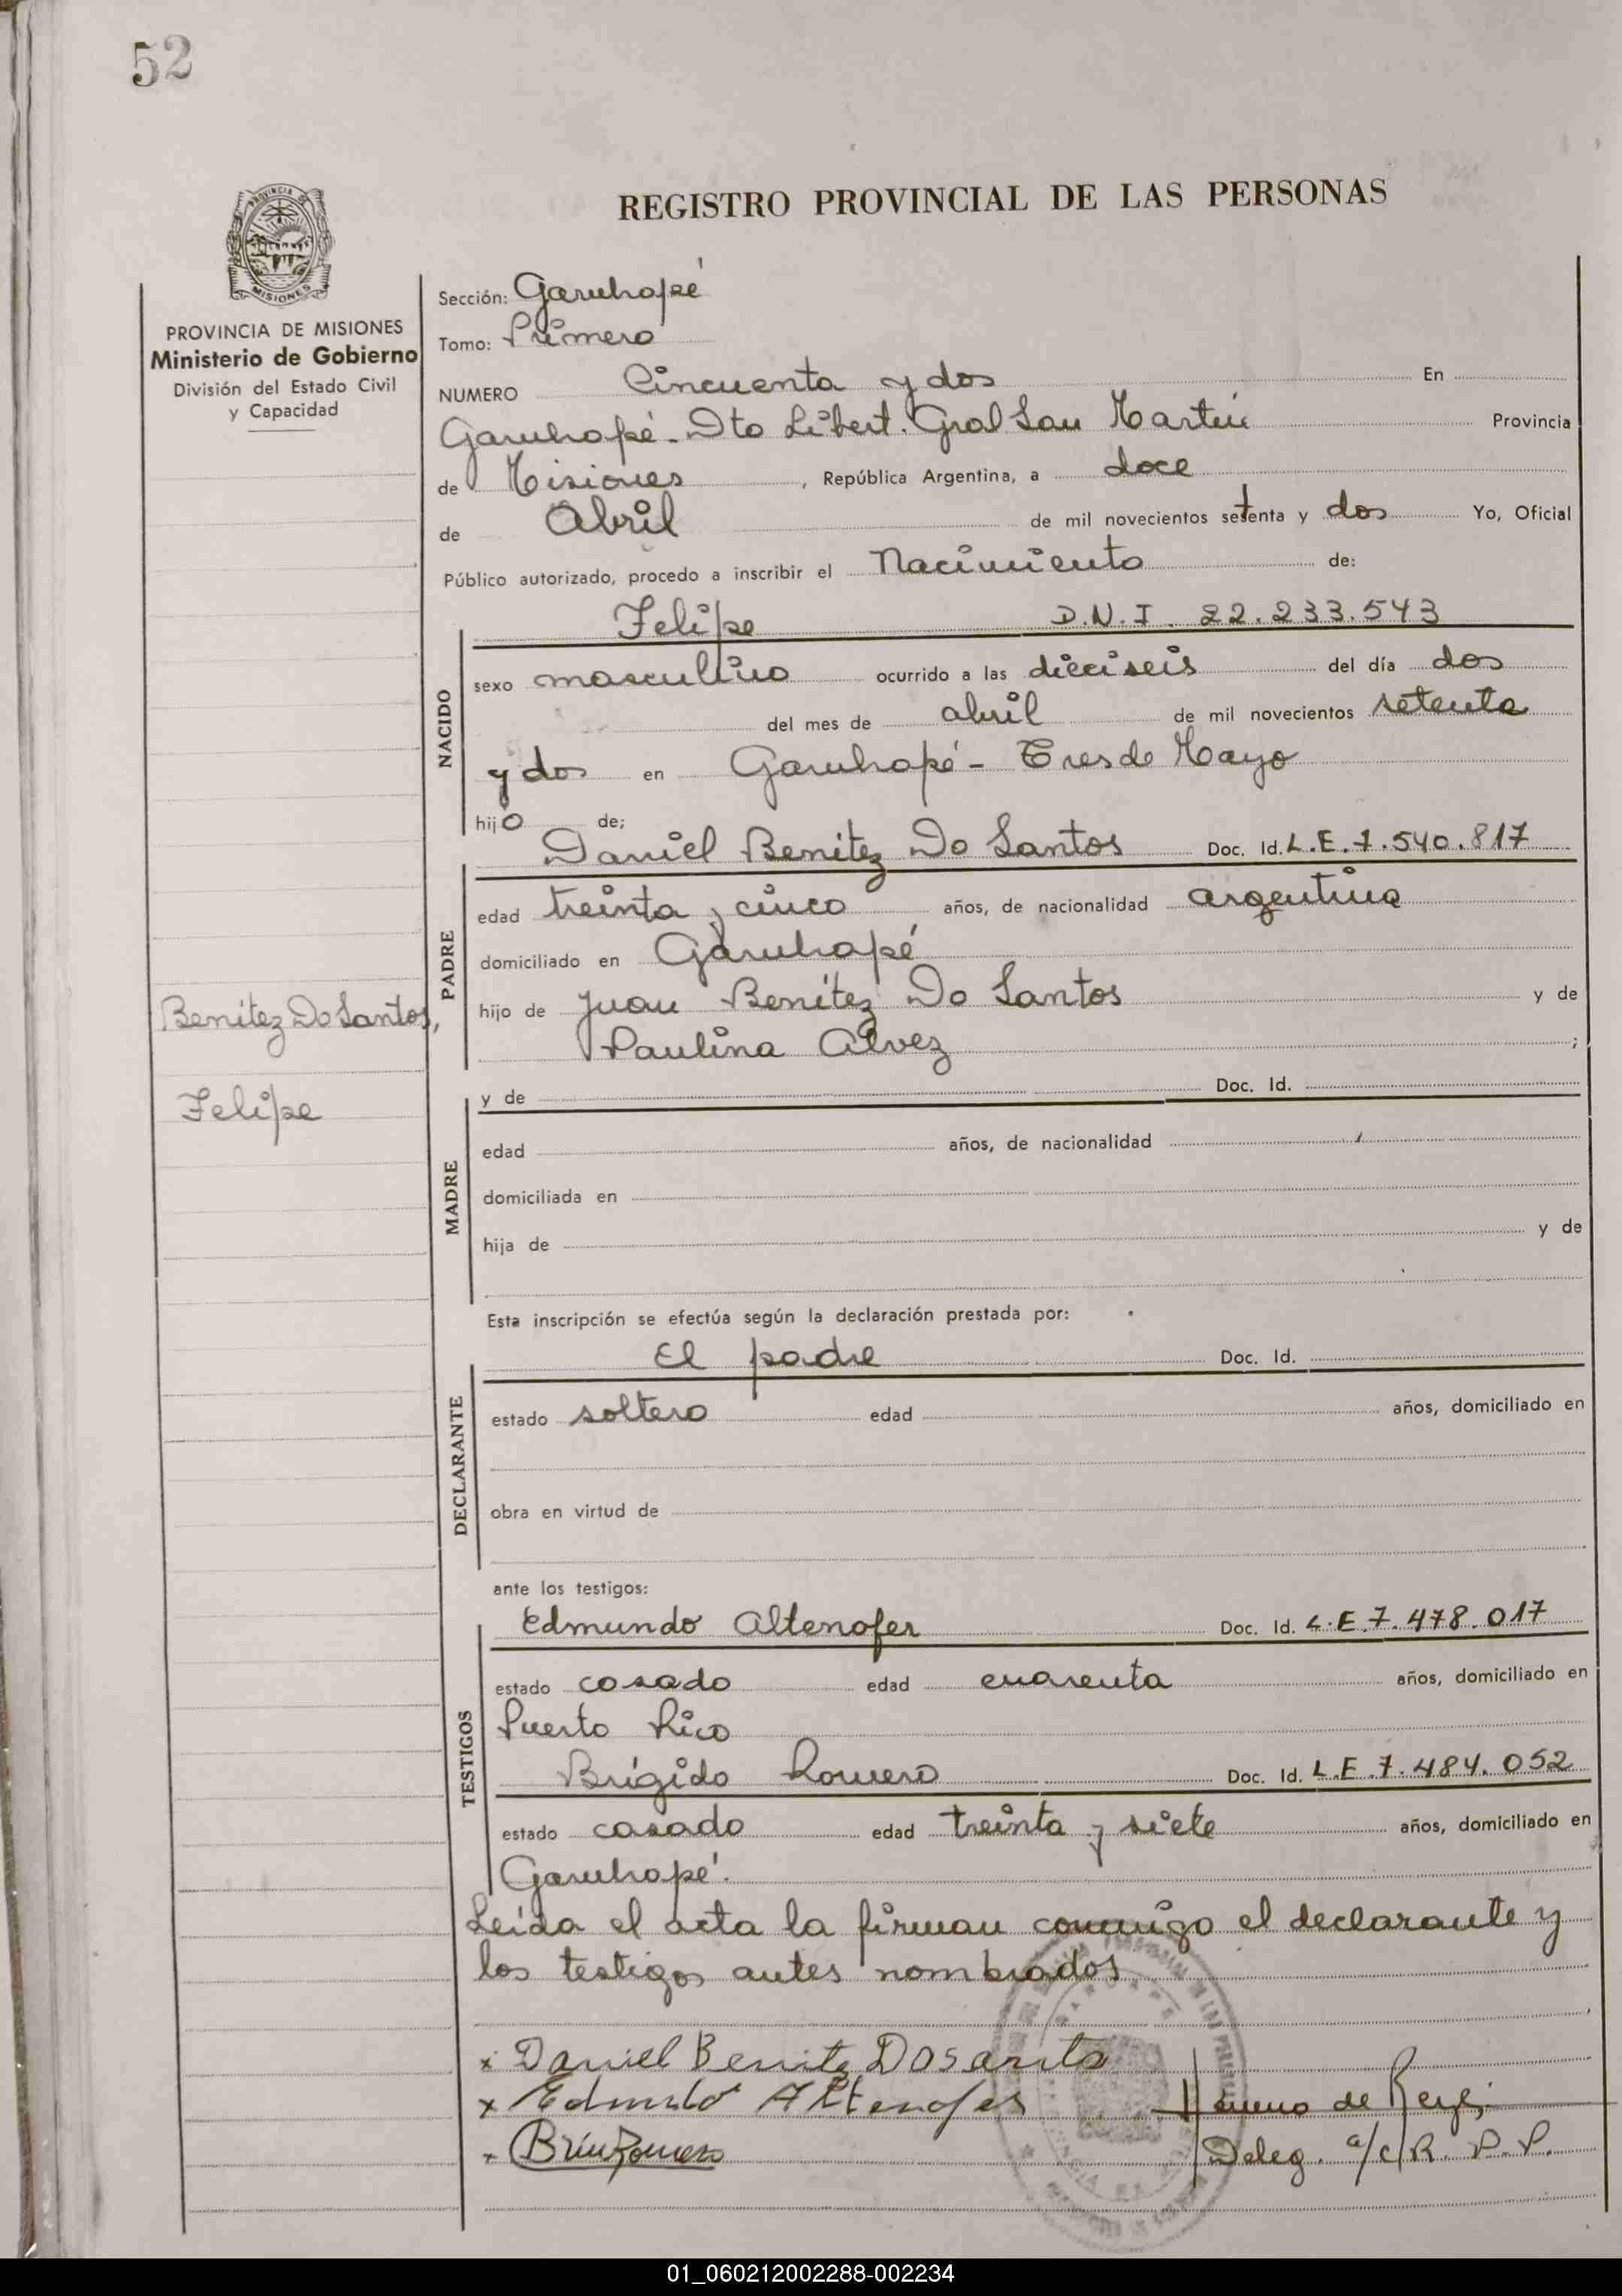 52
REGISTRO PROVINCIAL DE LAS PERSONAS
PROVINCIA DE MISIONES
Ministerio de Gobierno
División del Estado Civil
y Capacidad
Sección: Garuhapé
Tomo: Primero
NUMERO Cincuenta y dos En
Garuhapé - Dto Libert. Gral San Martín Provincia
de Misiones, República Argentina, a doce
de Abril de mil novecientos setenta y dos Yo, Oficial
Público autorizado, procedo a inscribir el Nacimiento de:
Felipe D.N.I. 22.233.543
NACIDO
sexo masculino ocurrido a las dieciseis del día dos
del mes de abril de mil novecientos setenta
y dos en Garuhapé - Tres de Mayo
hijo de;
Daniel Benitez Do Santos Doc. Id. L.E. 7.540.817
PADRE
edad treinta y cinco años, de nacionalidad argentina
domiciliado en Garuhapé
hijo de Juan Benítez Do Santos y de
Paulina Alvez ;
Benítez Do Santos,
Felipe
MADRE
y de Doc. Id.
edad años, de nacionalidad
domiciliada en
hija de y de
Esta inscripción se efectúa según la declaración prestada por:
El padre Doc. Id.
DECLARANTE
estado soltero edad años, domiciliado en
obra en virtud de
ante los testigos:
Edmundo Altenofer Doc. Id. L.E. 7.478.017
TESTIGOS
estado casado edad cuarenta años, domiciliado en
Puerto Rico
Brígido Romero Doc. Id. L.E. 7.484.052
estado casado edad treinta y siete años, domiciliado en
Garuhapé.
Leída el acta la firman conmigo el declarante y
los testigos antes nombrados
x Daniel Benite Dosanto
x Edmundo Altenofer
x
de
Deleg. a/c R. P. P.
01_060212002288-002234